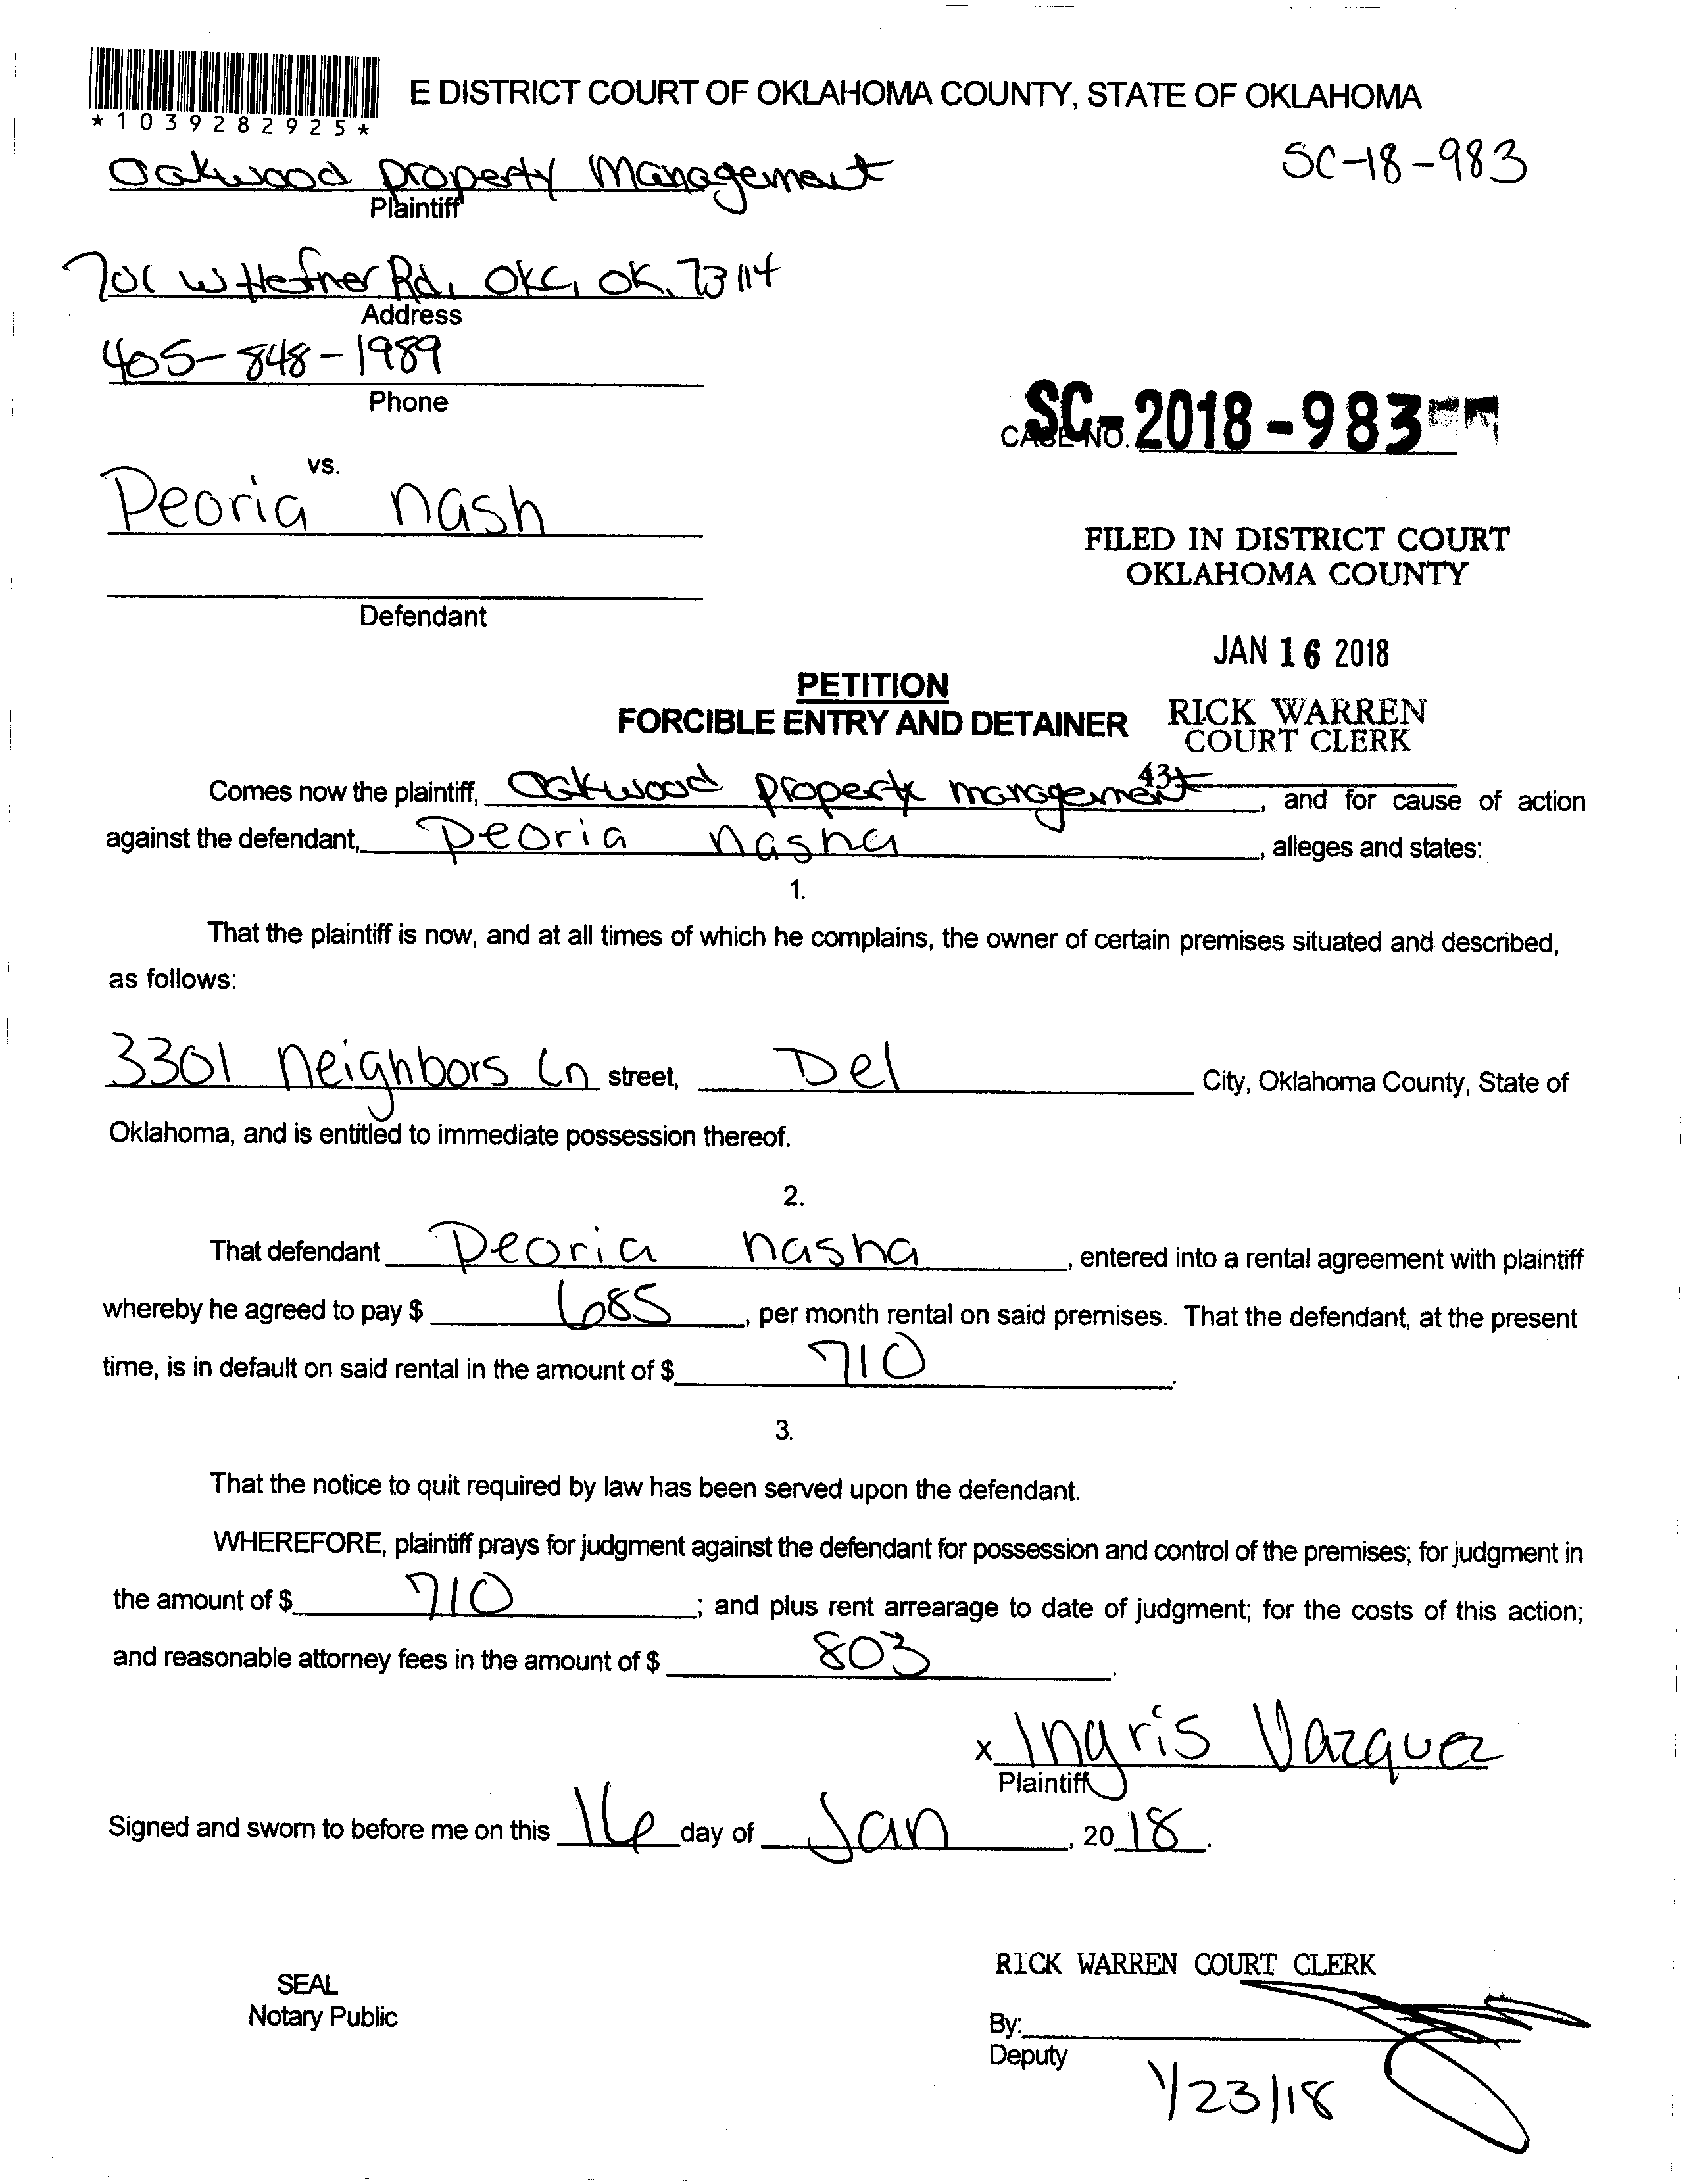 *1039282925*
E DISTRICT COURT OF OKLAHOMA COUNTY, STATE OF OKLAHOMA
SC-18-983
Oakwood property Management
Plaintiff
701 W Hefner Rd, OKC, OK, 73114
Address
405-848-1989
Phone
CASE NO. SC-2018-983
vs.
Peoria nash
Defendant
FILED IN DISTRICT COURT
OKLAHOMA COUNTY
JAN 16 2018
PETITION
FORCIBLE ENTRY AND DETAINER
RICK WARREN
COURT CLERK
43
Comes now the plaintiff, Oakwood property management, and for cause of action
against the defendant, Peoria nasha, alleges and states:
1.
That the plaintiff is now, and at all times of which he complains, the owner of certain premises situated and described,
as follows:
3301 neighbors Ln street, Del City, Oklahoma County, State of
Oklahoma, and is entitled to immediate possession thereof.
2.
That defendant Peoria nasha, entered into a rental agreement with plaintiff
whereby he agreed to pay $ 685, per month rental on said premises. That the defendant, at the present
time, is in default on said rental in the amount of $ 710.
3.
That the notice to quit required by law has been served upon the defendant.
WHEREFORE, plaintiff prays for judgment against the defendant for possession and control of the premises; for judgment in
the amount of $ 710; and plus rent arrearage to date of judgment; for the costs of this action;
and reasonable attorney fees in the amount of $ 803.
x Ingris Vazquez
Plaintiff
Signed and sworn to before me on this 16 day of Jan, 2018.
RICK WARREN COURT CLERK
SEAL
Notary Public
By:
Deputy
1/23/18